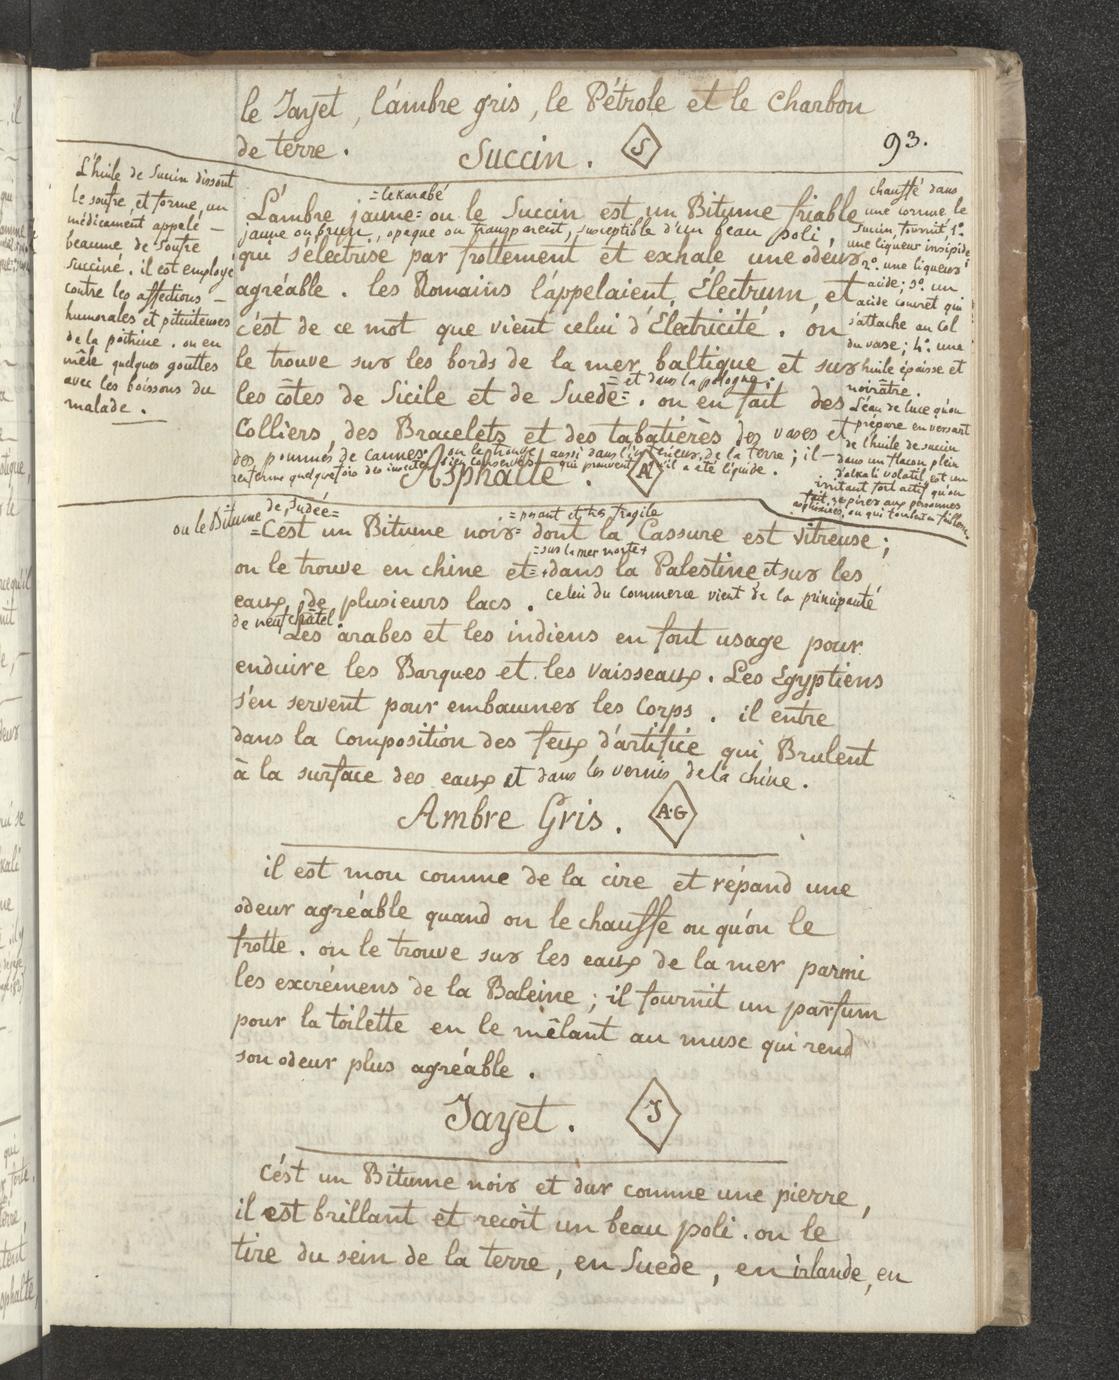 le Jayet, l'ambre gris, le Pétrole et le Charbon
de terre.
93.
Succin. S
L'huile de Succin dissout
le soufre et forme un
médicament appelé —
beaume de soufre
succiné. il est employé
contre les affections —
humorales et pituiteuses
de la poitrine. on en
mêle quelques gouttes
avec les boissons du
malade.
= le Karabé
L'ambre jaune = ou le Succin est un Bitume friable
jaune ou brun, opaque ou transparent, susceptible d'un beau poli,
qui s'électrise par frottement et exhale une odeur
agréable. les Romains l'appelaient, Électrum, et
c'est de ce mot que vient celui d'Electricité. on
le trouve sur les bords de la mer baltique et sur
= et dans la pologne.
les côtes de Sicile et de Suede =. on en fait des
Colliers, des Bracelets et des tabatières des vases et
des pommes de cannes. on le trouve aussi dans l'intérieur de la terre; il —
renferme quelquefois des insectes bien conservés qui prouvent qu'il a été liquide.
chauffé dans
une cornue le
Succin, fournit 1°.
une liqueur insipide
2°. une liqueur
acide; 3°. un
acide concret qui
s'attache au Col
du vase; 4°. une
huile épaisse et
noirâtre.
L'eau de luce qu'on
prépare en versant
de l'huile de succin
dans un flacon plein
d'alkali volatil est un
irritant fort actif qu'on
fait respirer aux personnes
asphixiées, ou qui tombent en
Asphalte. A
ou le Bitume de Judée =
= pesant et très fragile
= C'est un Bitume noir = dont la Cassure est vitreuse;
= sur la mer morte +
on le trouve en chine et = + dans la Palestine et sur les
eaux de plusieurs lacs. celui du Commerce vient de la principauté
de neufchâtel
Les arabes et les indiens en font usage pour
enduire les Barques et les vaisseaux. Les Egyptiens
s'en servent pour embaumer les Corps. il entre
dans la Composition des feux d'artifice qui Brulent
à la surface des eaux et dans les vernis de la chine.
Ambre Gris. A.G
il est mou comme de la cire et répand une
odeur agréable quand on le chauffe ou qu'on le
frotte. on le trouve sur les eaux de la mer parmi
les excrémens de la Baleine; il fournit un parfum
pour la toilette en le mêlant au musc qui rend
son odeur plus agréable.
Jayet. J
C'est un Bitume noir et dur comme une pierre,
il est brillant et reçoit un beau poli. on le
tire du sein de la terre, en Suede, en irlande, en